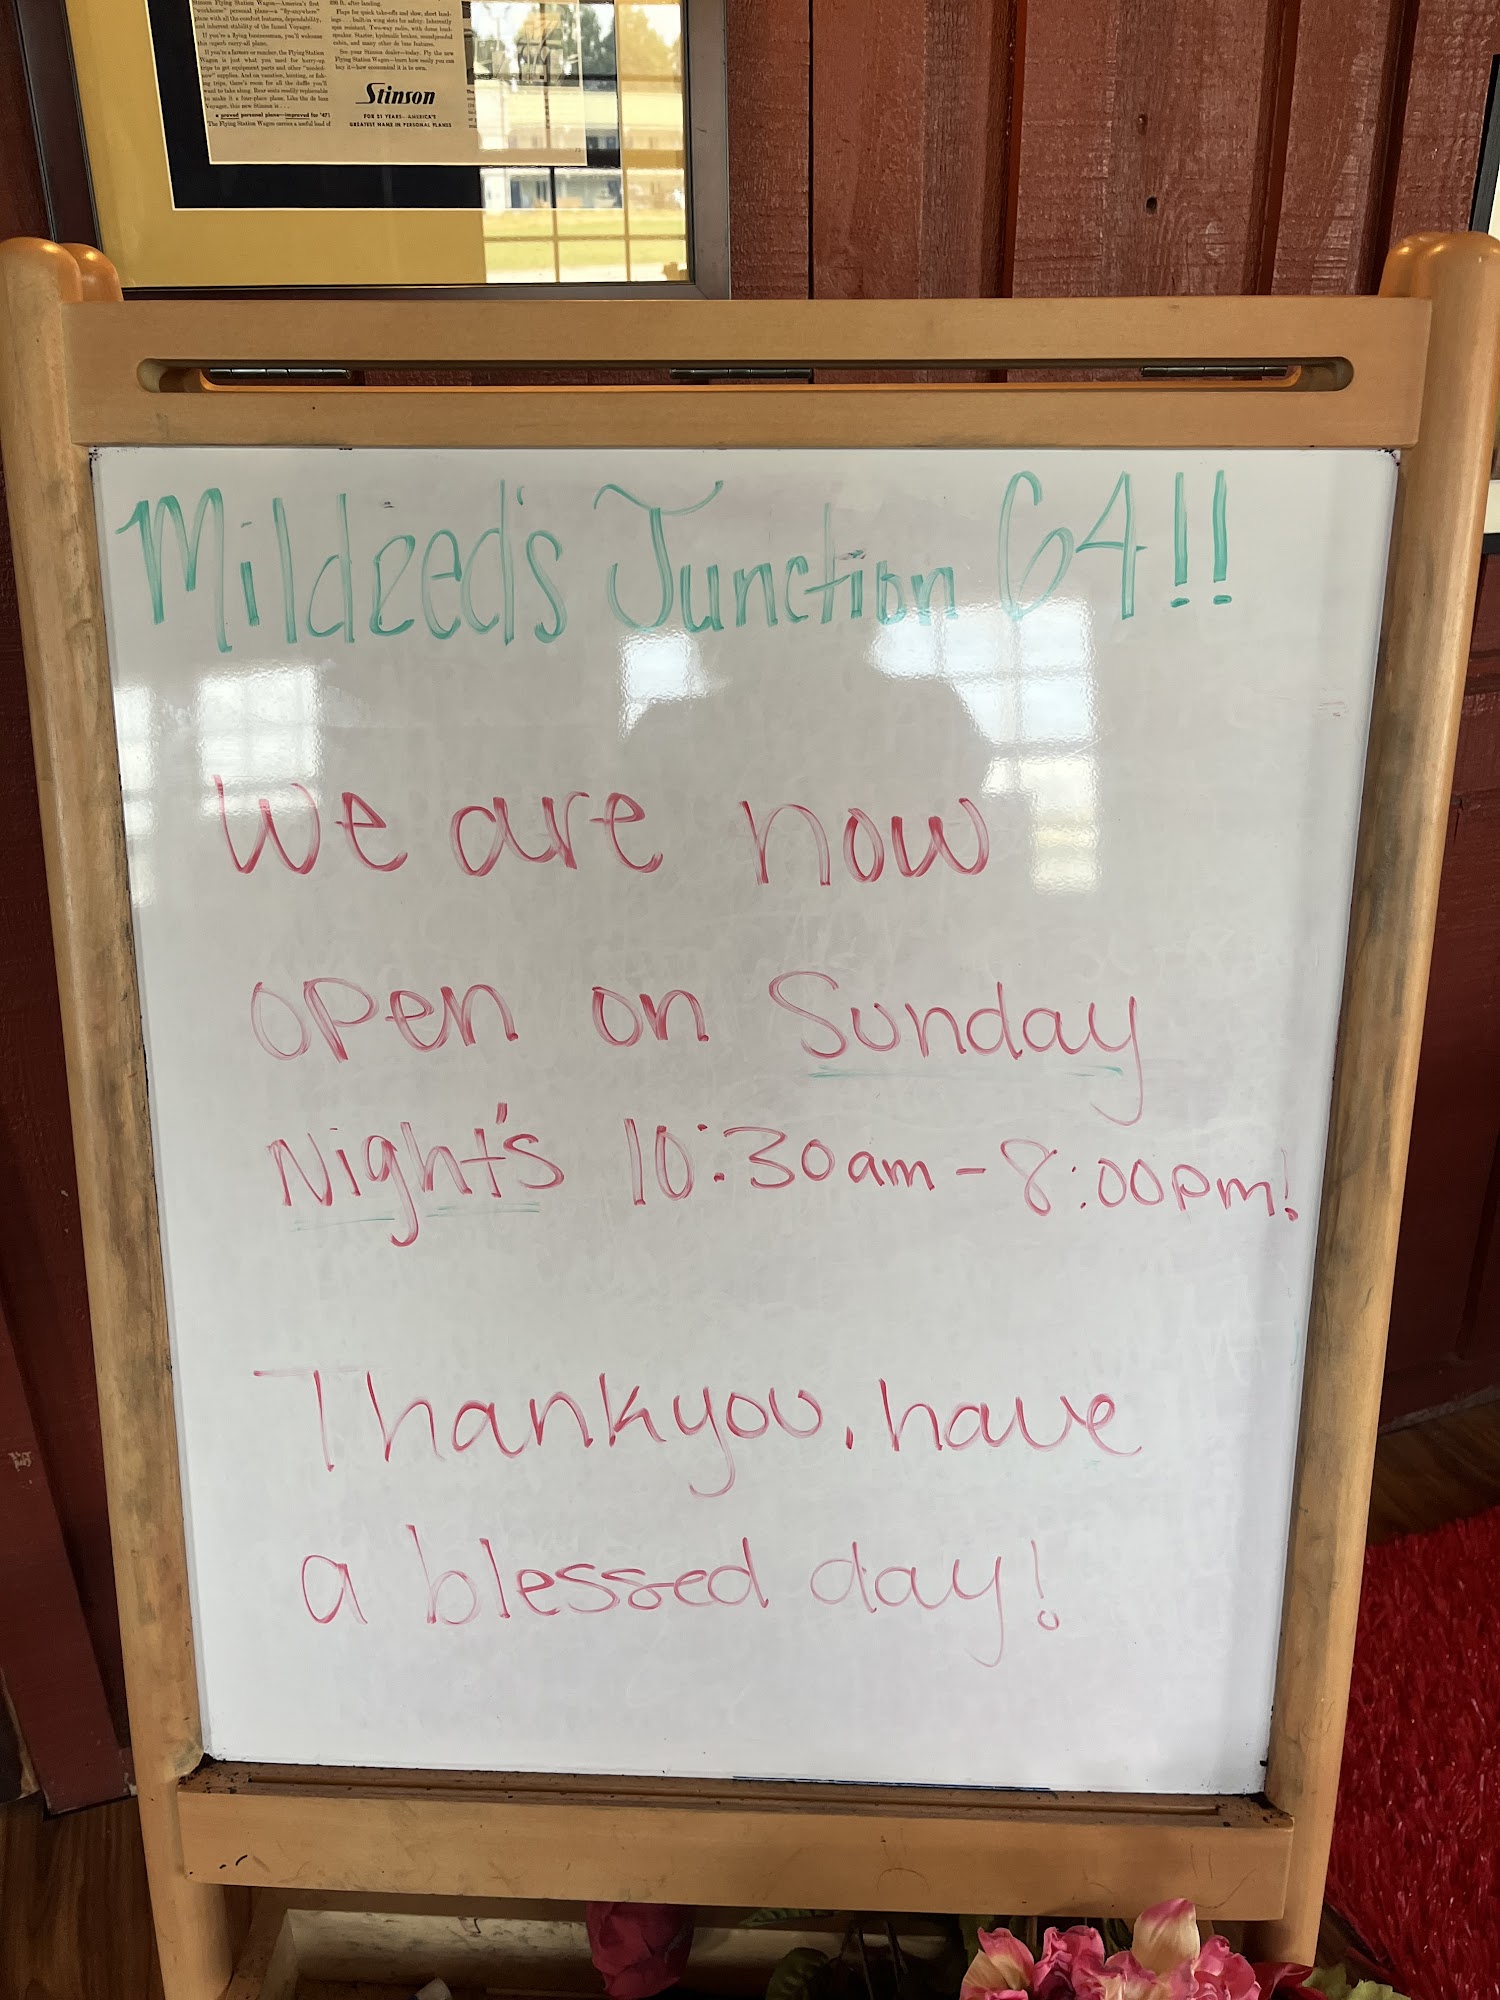 Stinson Flying Station Wagon—America's first
"workhorse" personal plane—a "fly-anywhere"
plane with all the comfort features, dependability,
and inherent stability of the famed Voyager.
If you're a flying businessman, you'll welcome
this superb carry-all plane.
If you're a farmer or rancher, the Flying Station
Wagon is just what you need for hurry-up
trips to get equipment parts and other "needed-
now" supplies. And on vacation, hunting, or fish-
ing trips, there's room for all the duffle you'll
want to take along. Rear seats readily replaceable
to make it a four-place plane. Like the de luxe
Voyager, this new Stinson is . . .
a proved personal plane—improved for '47!
The Flying Station Wagon carries a useful load of
ft. after landing.
Flaps for quick take-offs and slow, short land-
ings . . . built-in wing slots for safety. Inherently
spin resistant. Two-way radio, with dome loud-
speaker. Starter, hydraulic brakes, soundproofed
cabin, and many other de luxe features.
See your Stinson dealer—today. Fly the new
Flying Station Wagon—learn how easily you can
buy it—how economical it is to own.
Stinson
FOR 21 YEARS—AMERICA'S
GREATEST NAME IN PERSONAL PLANES
Mildred's Junction 64!!
We are now
open on Sunday
Night's 10:30am - 8:00pm!
Thankyou, have
a blessed day!